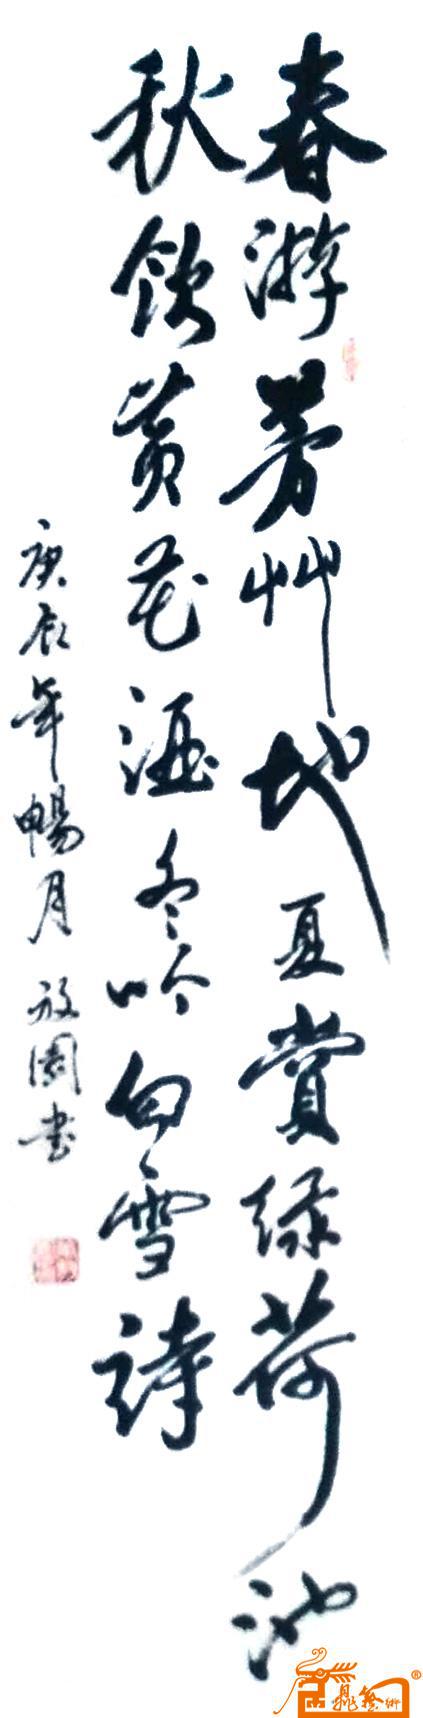 春游芳艸地夏赏绿荷池
秋饮黄花酒冬吟白雪詩
庚辰年暢月 放園书